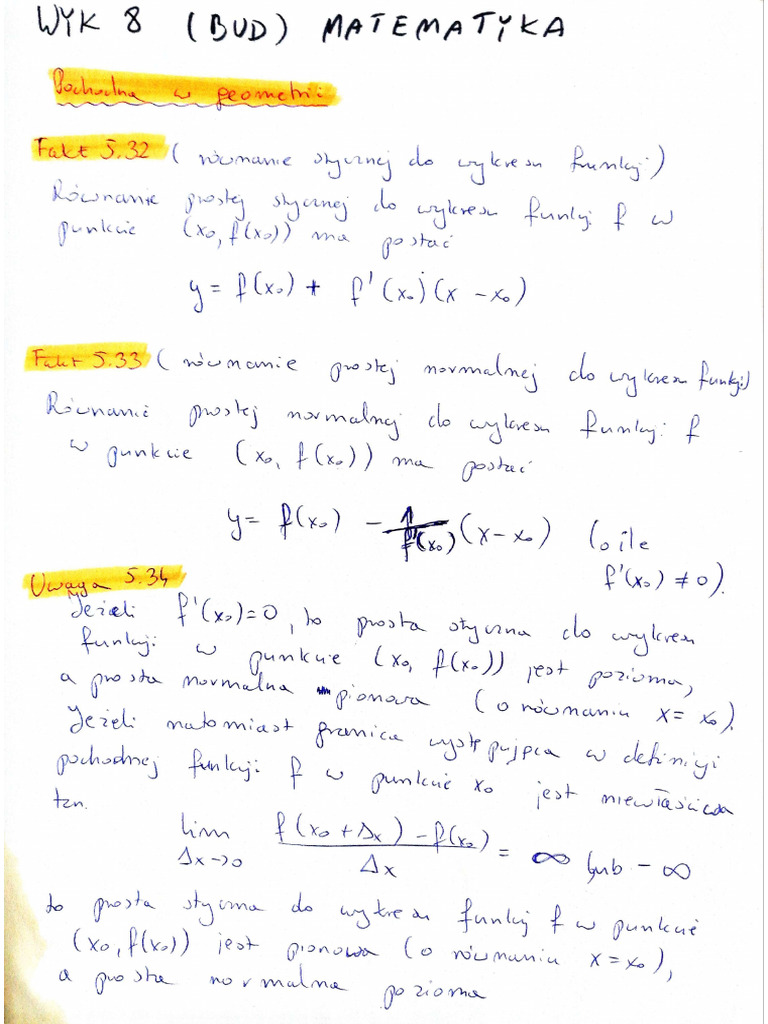 WYK 8 (BUD) MATEMATYKA
Pochodna w geometrii
Fakt 5.32 (równanie stycznej do wykresu funkcji)
Równanie prostej stycznej do wykresu funkcji f w
punkcie (x₀, f(x₀)) ma postać
y = f(x₀) + f'(x₀)(x - x₀)
Fakt 5.33 (równanie prostej normalnej do wykresu funkcji)
Równanie prostej normalnej do wykresu funkcji f
w punkcie (x₀, f(x₀)) ma postać
y = f(x₀) - 1/f'(x₀) (x - x₀) (o ile
f'(x₀) ≠ 0).
Uwaga 5.34
Jeżeli f'(x₀) = 0, to prosta styczna do wykresu
funkcji w punkcie (x₀, f(x₀)) jest pozioma,
a prosta normalna pionowa (o równaniu x = x₀).
Jeżeli natomiast granica występująca w definicji
pochodnej funkcji f w punkcie x₀ jest niewłaściwa
tzn.
lim Δx→0 f(x₀ + Δx) - f(x₀) / Δx = ∞ lub - ∞
to prosta styczna do wykresu funkcji f w punkcie
(x₀, f(x₀)) jest pionowa (o równaniu x = x₀),
a prosta normalna pozioma